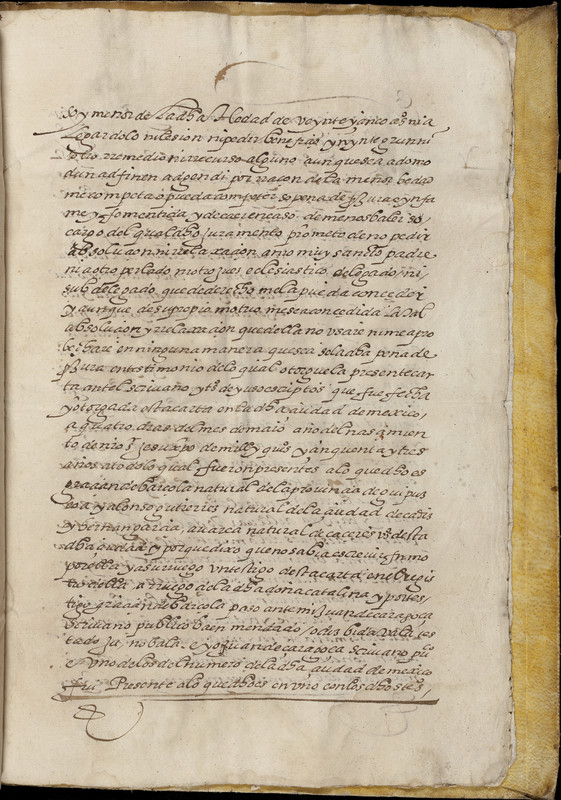 so y menor de la dha hedad de veynte y cinco años ni a
le par dolo ni lesion ni pedir beneficio yn yntegrun ni
otro rremedio ni rrecurso alguno aunque sea ad omo
dun ad finen adgendi por rracon de la menor hedad
me competa o pueda competer so pena de perjura e ynfa
me y fementida y de caer en caso de menos baler so
cargo del qual dho juramento prometo de no pedir
absolucion ni rrelaxacion a nro muy santo padre
ni a otro perlado ni otro juez eclesiastico delegado ni
subdelegado que de derecho me la pueda conceder
y aunque de su propio motuo me sea concedida la tal
absolucion y rrelaxacion que della no vsare ni me apro
bechare en ninguna manera que sea so la dha pena de
perjura en testimonio de lo qual otorgue la presente car
ta ante el scriuano y tos de yuso escriptos que fue fecha
y otorgada esta carta en la dha ciudad de mexico
a quatro dias del mes de maio año del nascimien
to de nro sr jesucripo de mill y quis y cinquenta y tres
años a to do lo qual fueron presentes a lo que dho es
gracian de barcola natural de la prouincia de guipus
coa y alonso gutierres natural de la ciudad de cadis
y hernan garcia natural de caceres vs desta
dha ciudad y porque dixo que no sabia escreuir firmo
por ella y a su ruego vn testigo desta carta en el rregis
tro della a ruego de la dha doña catalina y por tes
tigo gracian de barcola paso ante mi juan de caraçoca
scriuano publico ba en mendado
tado ja no bala e yo juan de caraçoca scriuano puco
e vno de los del numero de la dha ciudad de mexico
fui Presente a lo que dho es en vno con los dhos tos